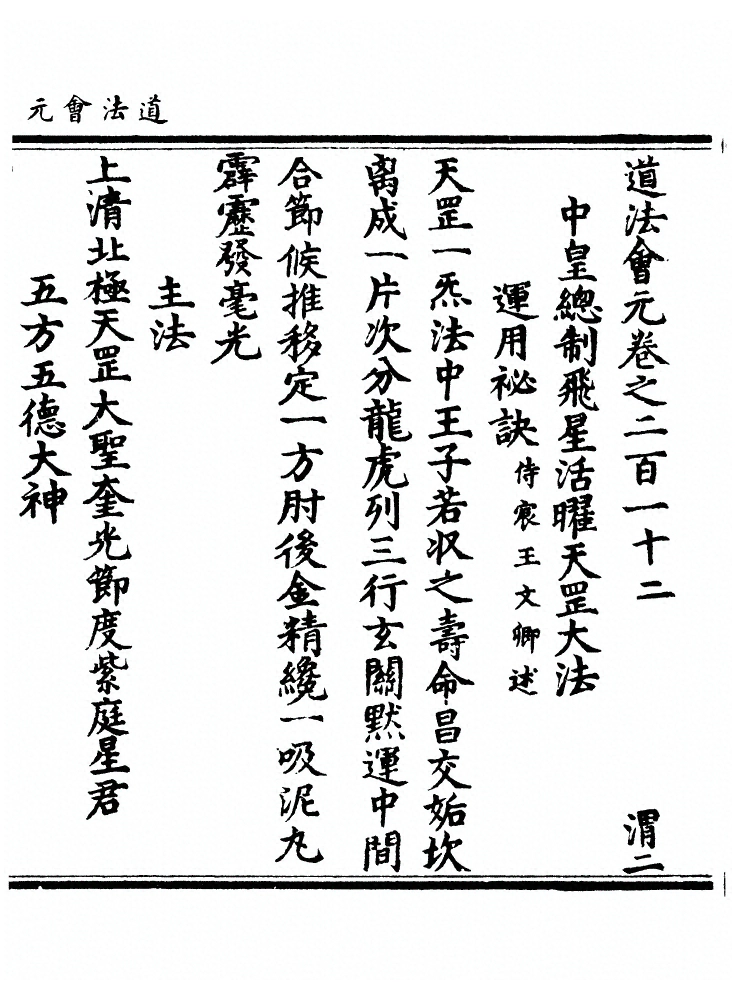 道法會元
道法會元卷之二百一十二 渭二
中皇總制飛星活曜天罡大法
運用祕訣 侍宸王文卿述
天罡一炁法中王子若収之壽命昌交姤坎
离成一片次分龍虎列三行玄關默運中間
合節候推移定一方肘後金精纔一吸泥丸
霹靂發毫光
主法
上清北極天罡大聖奎光節度紫庭星君
五方五德大神